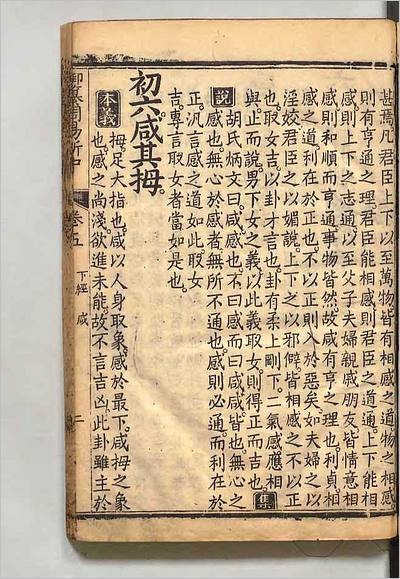 甚焉凡君臣上下以至萬物皆有相感之道物之相感
則有亨通之理君臣能相感則君臣之道通上下能相
感則上下之志通以至父子夫婦親戚朋友皆情意相
感則和順而亨通事物皆然故咸有亨之理也利貞相
感之道利在於正也不以正則入於惡矣如夫婦之以
淫姣君臣之以媚說上下之以邪僻皆相感之不以正
也取女吉以卦才言也卦有柔上剛下二氣感應相
與止而說男下女之義以此義取女則得正而吉也 集
說 胡氏炳文曰咸感也不曰感而曰咸咸皆也無心之
感也無心於感者無所不通也感則必通而利在於
正汎言感之道如此取女
吉專言取女者當如是也
初六咸其拇
本義 拇足大指也咸以人身取象感於最下咸拇之象
也感之尚淺欲進未能故不言吉凶此卦雖主於
卷五
下經 咸
二